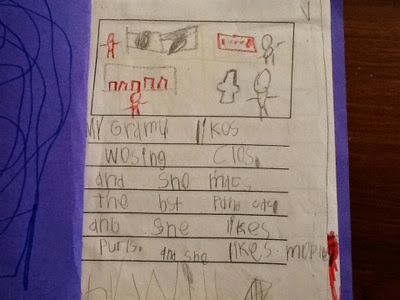 My Gramy likes
wosing Clos.
and she macs
the bst
and she likes.
Purls. and she likes